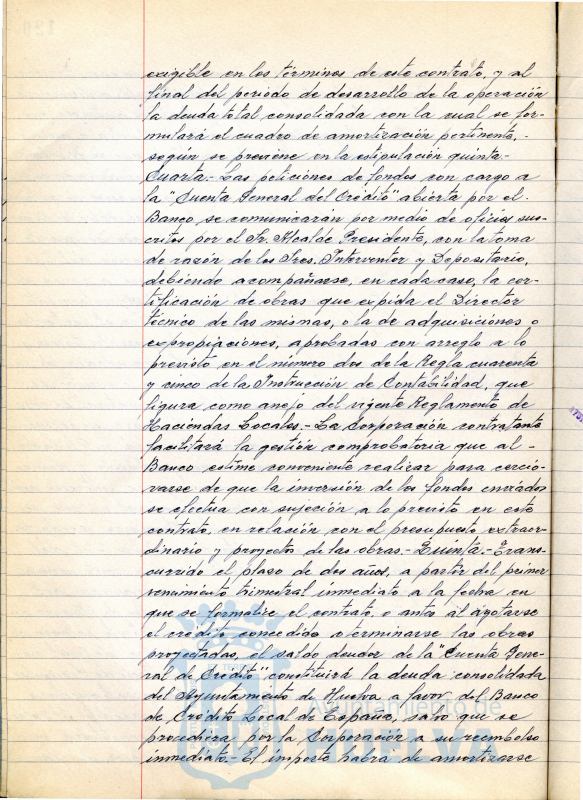 exigible en los términos de este contrato, y al
final del periodo de desarrollo de la operación
la deuda total consolidada con la cual se for-
mulará el cuadro de amortización pertinente,-
según se previene en la estipulación quinta.-
Cuarta.- Las peticiones de fondos con cargo a
la "Cuenta General del Crédito" abierta por el.
Banco, se comunicarán por medio de oficios sus-
critos por el Sr. Alcalde Presidente, con la toma
de razón de los Sres. Interventor y Depositario,
debiendo acompañarse, en cada caso, la cer-
tificación de obras que expida el Director
técnico de las mismas, o la de adquisiciones o
expropiaciones, aprobadas con arreglo a lo
previsto en el número dos de la Regla cuarenta
y cinco de la Instrucción de Contabilidad, que
figura como anejo del vigente Reglamento de
Haciendas Locales.- La Corporación contratante
facilitará la gestión comprobatoria que al -
Banco estime conveniente realizar para cercio-
rarse de que la inversión de los fondos enviados
se efectua con sujeción a lo previsto en este
contrato, en relación con el presupuesto extraor-
dinario y proyectos de las obras.- Quinta.- Trans-
currido el plazo de dos años, a partir del primer
vencimiento trimestral inmediato a la fecha en
que se formalice el contrato, o antes al agotarse
el crédito concedido o terminarse las obras
proyectadas, el saldo deudor de la "Cuenta Gene-
ral de Crédito" constituirá la deuda consolidada
del Ayuntamiento de Huelva a favor del Banco
de Crédito Local de España, salvo que se
procediera por la Corporación a su reembolso
inmediato.- El importe habrá de amortizarse
Ayuntamiento de
HUELVA